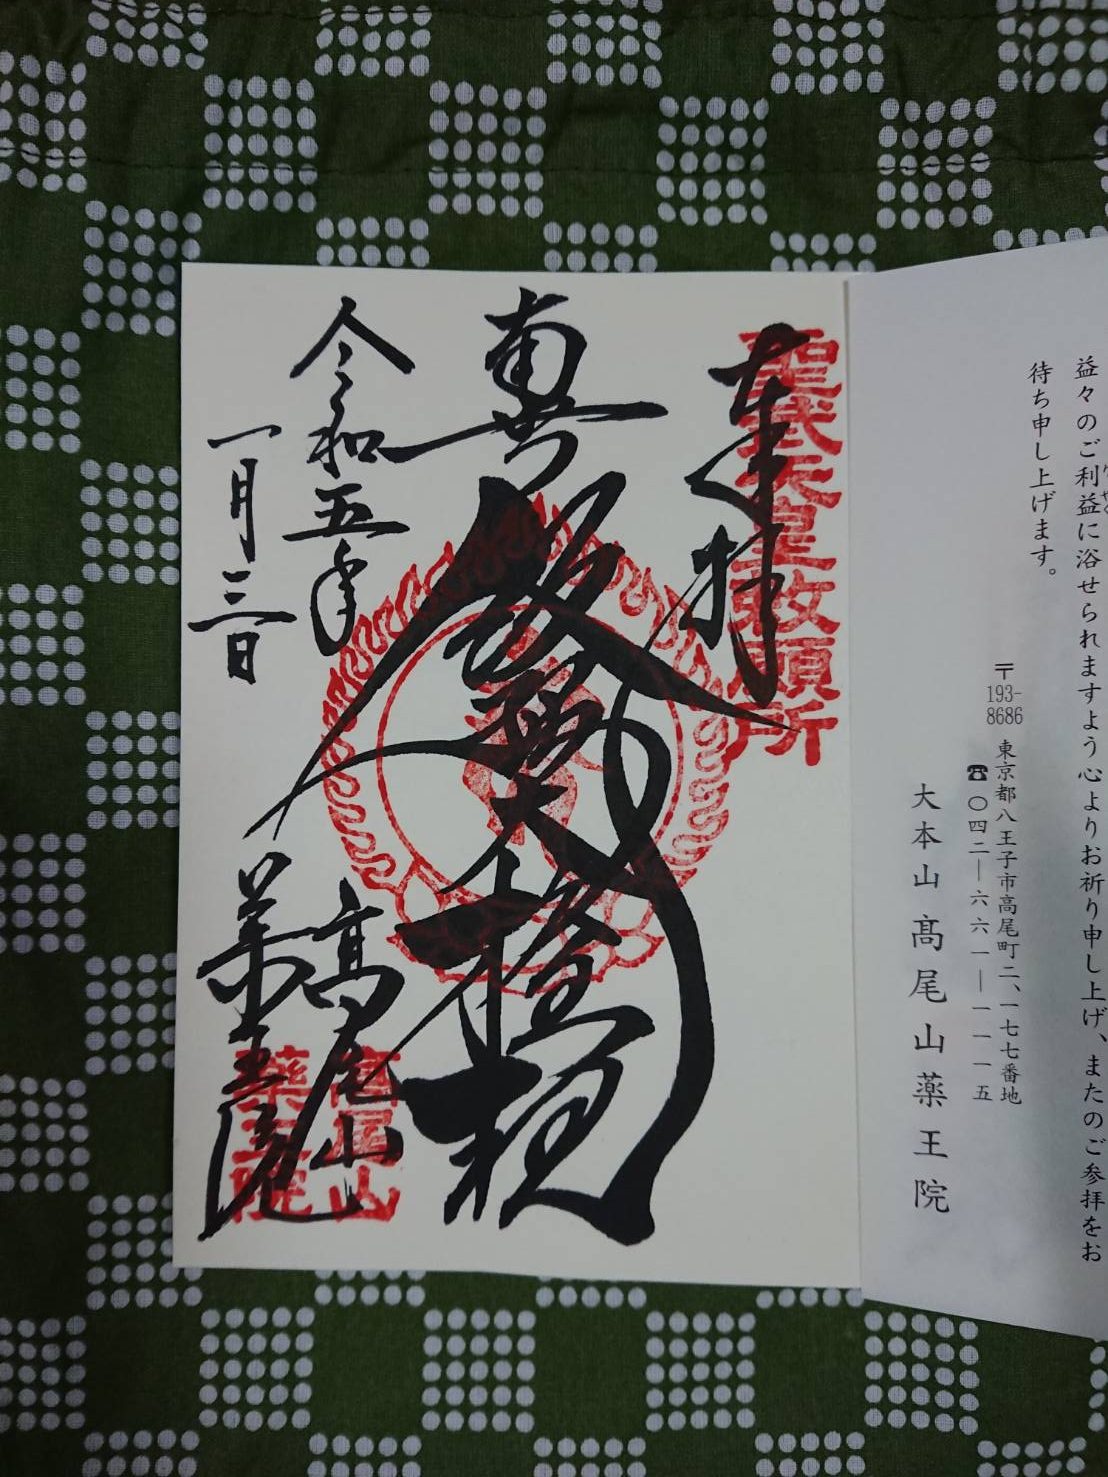 益々のご利益に浴せられますよう心よりお祈り申し上げ、またのご参拝をお
待ち申し上げます。
〒193-8686 東京都八王子市高尾町二、一七七番地
☎〇四二―六六一―一一一五
大本山髙尾山薬王院
奉拝
聖武天皇敕願所
飯縄大権現
令和五年
一月三日
高尾山
薬王院
高尾山
薬王院